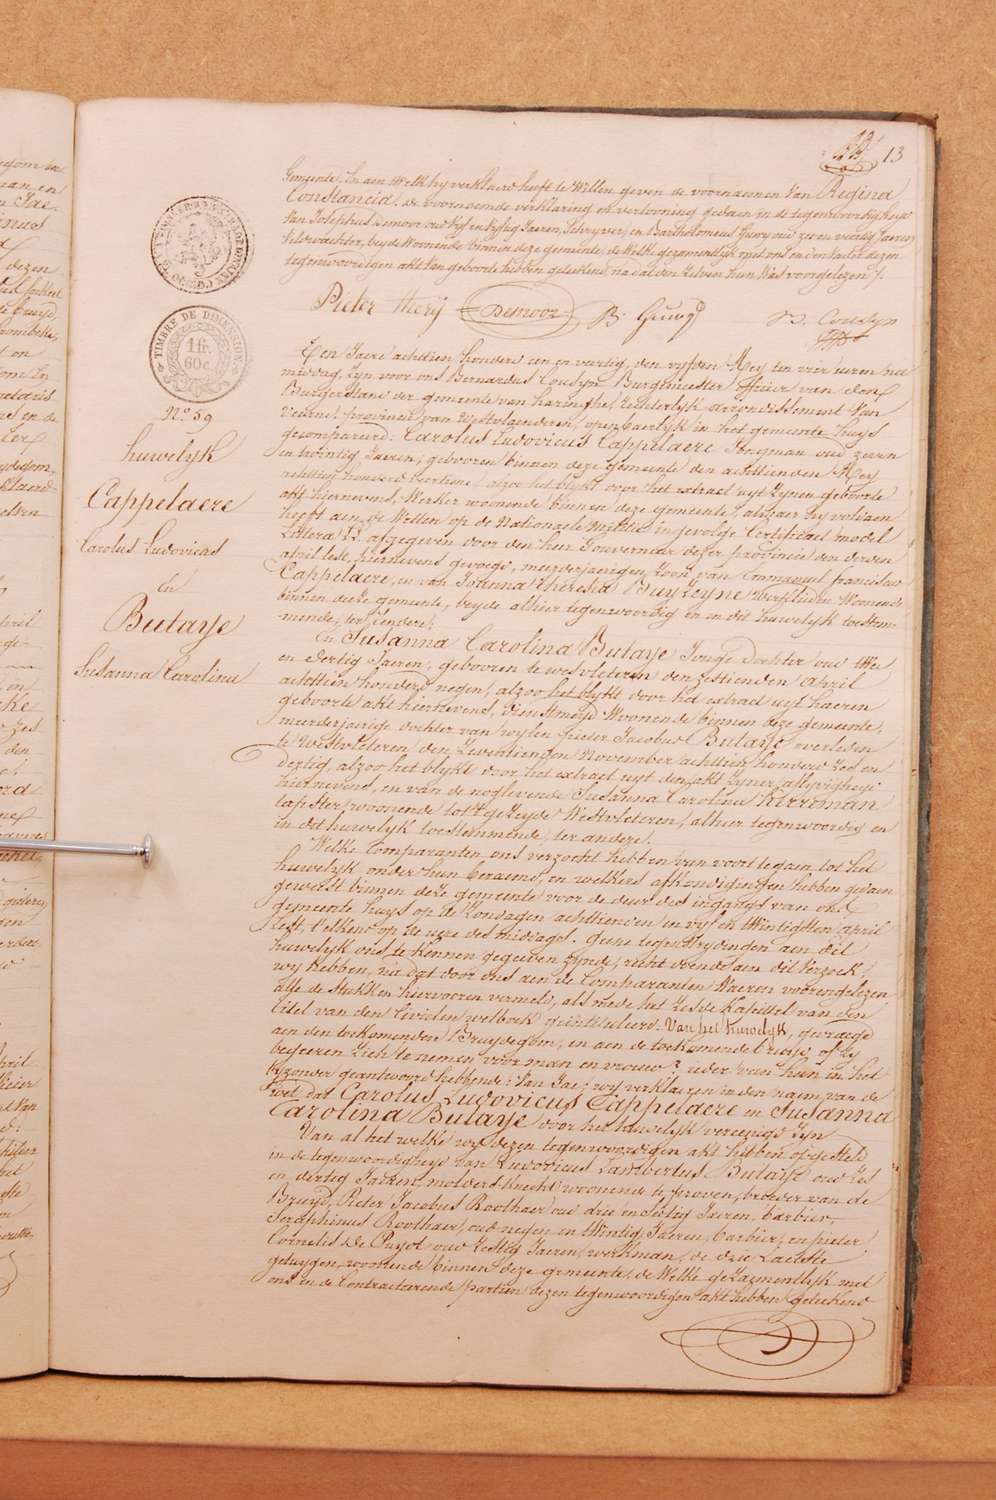 13
Gemeente, En aen Welk hy verklaerd heeft te Willen geven de voornaemen Van Regina
Constancia. de voornoemde verklaring en vertooning gedaen in de tegenwoordigheyd
Van Josephus Demoor oud Vyf en Vyftig Jaeren, Schryver, en Bartholomeus Gheury oud zes en veertig Jaeren
Veldwachter, beyde Woonende binnen deze gemeente, de Welke gezamentlyk met ons en den Vader dezen
tegenwoordigen akt Van geboorte hebben geteekend na dat den zelven hun Was voorgelezen /.
Pieter Merij Demoor B. Gheury B. Cousyn
TIMBRE DE DIMENSION
1 fr. 60 c.
Nº 59
huwelijk
Cappelaere
Carolus Ludovicus
En
Butaye
Susanna Carolina
Ten Jaere achttien honderd een en dertig, den vyfden Mey ten vier uren na
middag, Zyn voor ons Bernardus Cousyn Burgmeester officier van den
Burgerstand der gemeente van haringhe, Rechterlyk arrondissement Van
Veurne, provincie van Westvlaenderen, openbaerlyk in het gemeente huys
gecompareerd. Carolus Ludovicus Cappelaere Jongman oud zeven
en twintig Jaeren, gebooren binnen deze gemeente den achttienden Mey
achttien honderd veertien, alzoo het blykt door het extract uyt Zynen geboorte
akt hiernevens, Werker woonende binnen deze gemeente, alwaer hy voldaen
heeft aen de Wetten op de Nationaele Militie ingevolge Certificaet model
Littera afgegeven door den heer Gouverneur dezer provincie den derden
april lest, hiernevens gevoegd, meerderjaerigen Zoon van Emmanuel franciscus
Cappelaere, en van Joanna Theresia Buyzeyne Werklieden Woonende
binnen deze gemeente, beyde alhier tegenwoordig en in dit huwelyk toestem-
-mende, ter eendere;
En Susanna Carolina Butaye Jonge Dochter oud twee
en dertig Jaeren, gebooren te westvleteren den zestienden April
achttien honderd negen, alzoo het blykt door het extract uyt haeren
geboorte akt hiernevens, Dienstmeyd Woonende binnen deze gemeente,
meerderjaerige dochter van wylen pieter Jacobus Butaye overleden
te Westvleteren den Zeventienden November achttien honderd Zes en
dertig, alzoo het blykt door het extract uyt den akt Zyner aflyvigheyd
hiernevens, en van de noglevende Susanna Carolina Kerrman
tapster, woonende tot gezeyde Westvleteren, alhier tegenwoordig en
in dit huwelyk toestemmende, ter andere.
Welke Comparanten ons verzocht hebben van voort te gaen tot het
huwelyk onder hun beraemd, en welkers afkondigingen hebben gedaen
geweest binnen deze gemeente voor de deur des ingangs van ons
gemeente huys op de Zondagen achttienden en vyf en twintigsten april
lest, telkens op de ure des middags. Geene tegenstrydinden aen dit
huwelyk ons te kennen gegeeven zynde, recht doende aen dit Verzoek,
wy hebben, na dat door ons aen de Comparanten Waeren voorengelezen
alle de Stukken hiervooren vermeld, als mede het Zesde Kapittel van den
titel van den Civielen wetboek geïntituleerd: Van het huwelyk, gevraegd
aen den toekomenden Bruydegom, en aen de toekomende Bruyd, of Zy
begeeren Zich te nemen voor man en vrouw? ieder van hun in het
byzonder geantwoord hebbende: Van Jae; wy verklaeren in den naem van de
wet dat Carolus Ludovicus Cappelaere en Susanna
Carolina Butaye door het huwelyk vereenigd Zyn
Van al het welke wy dezen tegenwoordigen akt hebben opgesteld
in de tegenwoordigheyd van Ludovicus Lambertus Butaye oud Zes
en dertig Jaeren, molders knecht woonende te proven, broeder van de
Bruyd, Pieter Jacobus Roothaer oud drie en sestig Jaeren, barbier,
Seraphinus Roothaer, oud negen en twintig Jaeren, barbier, en pieter
Cornelis De Puydt oud Zestig Jaeren, werkman, de drie Laetste
getuygen, woonende binnen deze gemeente, de Welke gezamentlyk met
ons en de Contracteerende partien dezen tegenwoordigen akt hebben geteekend